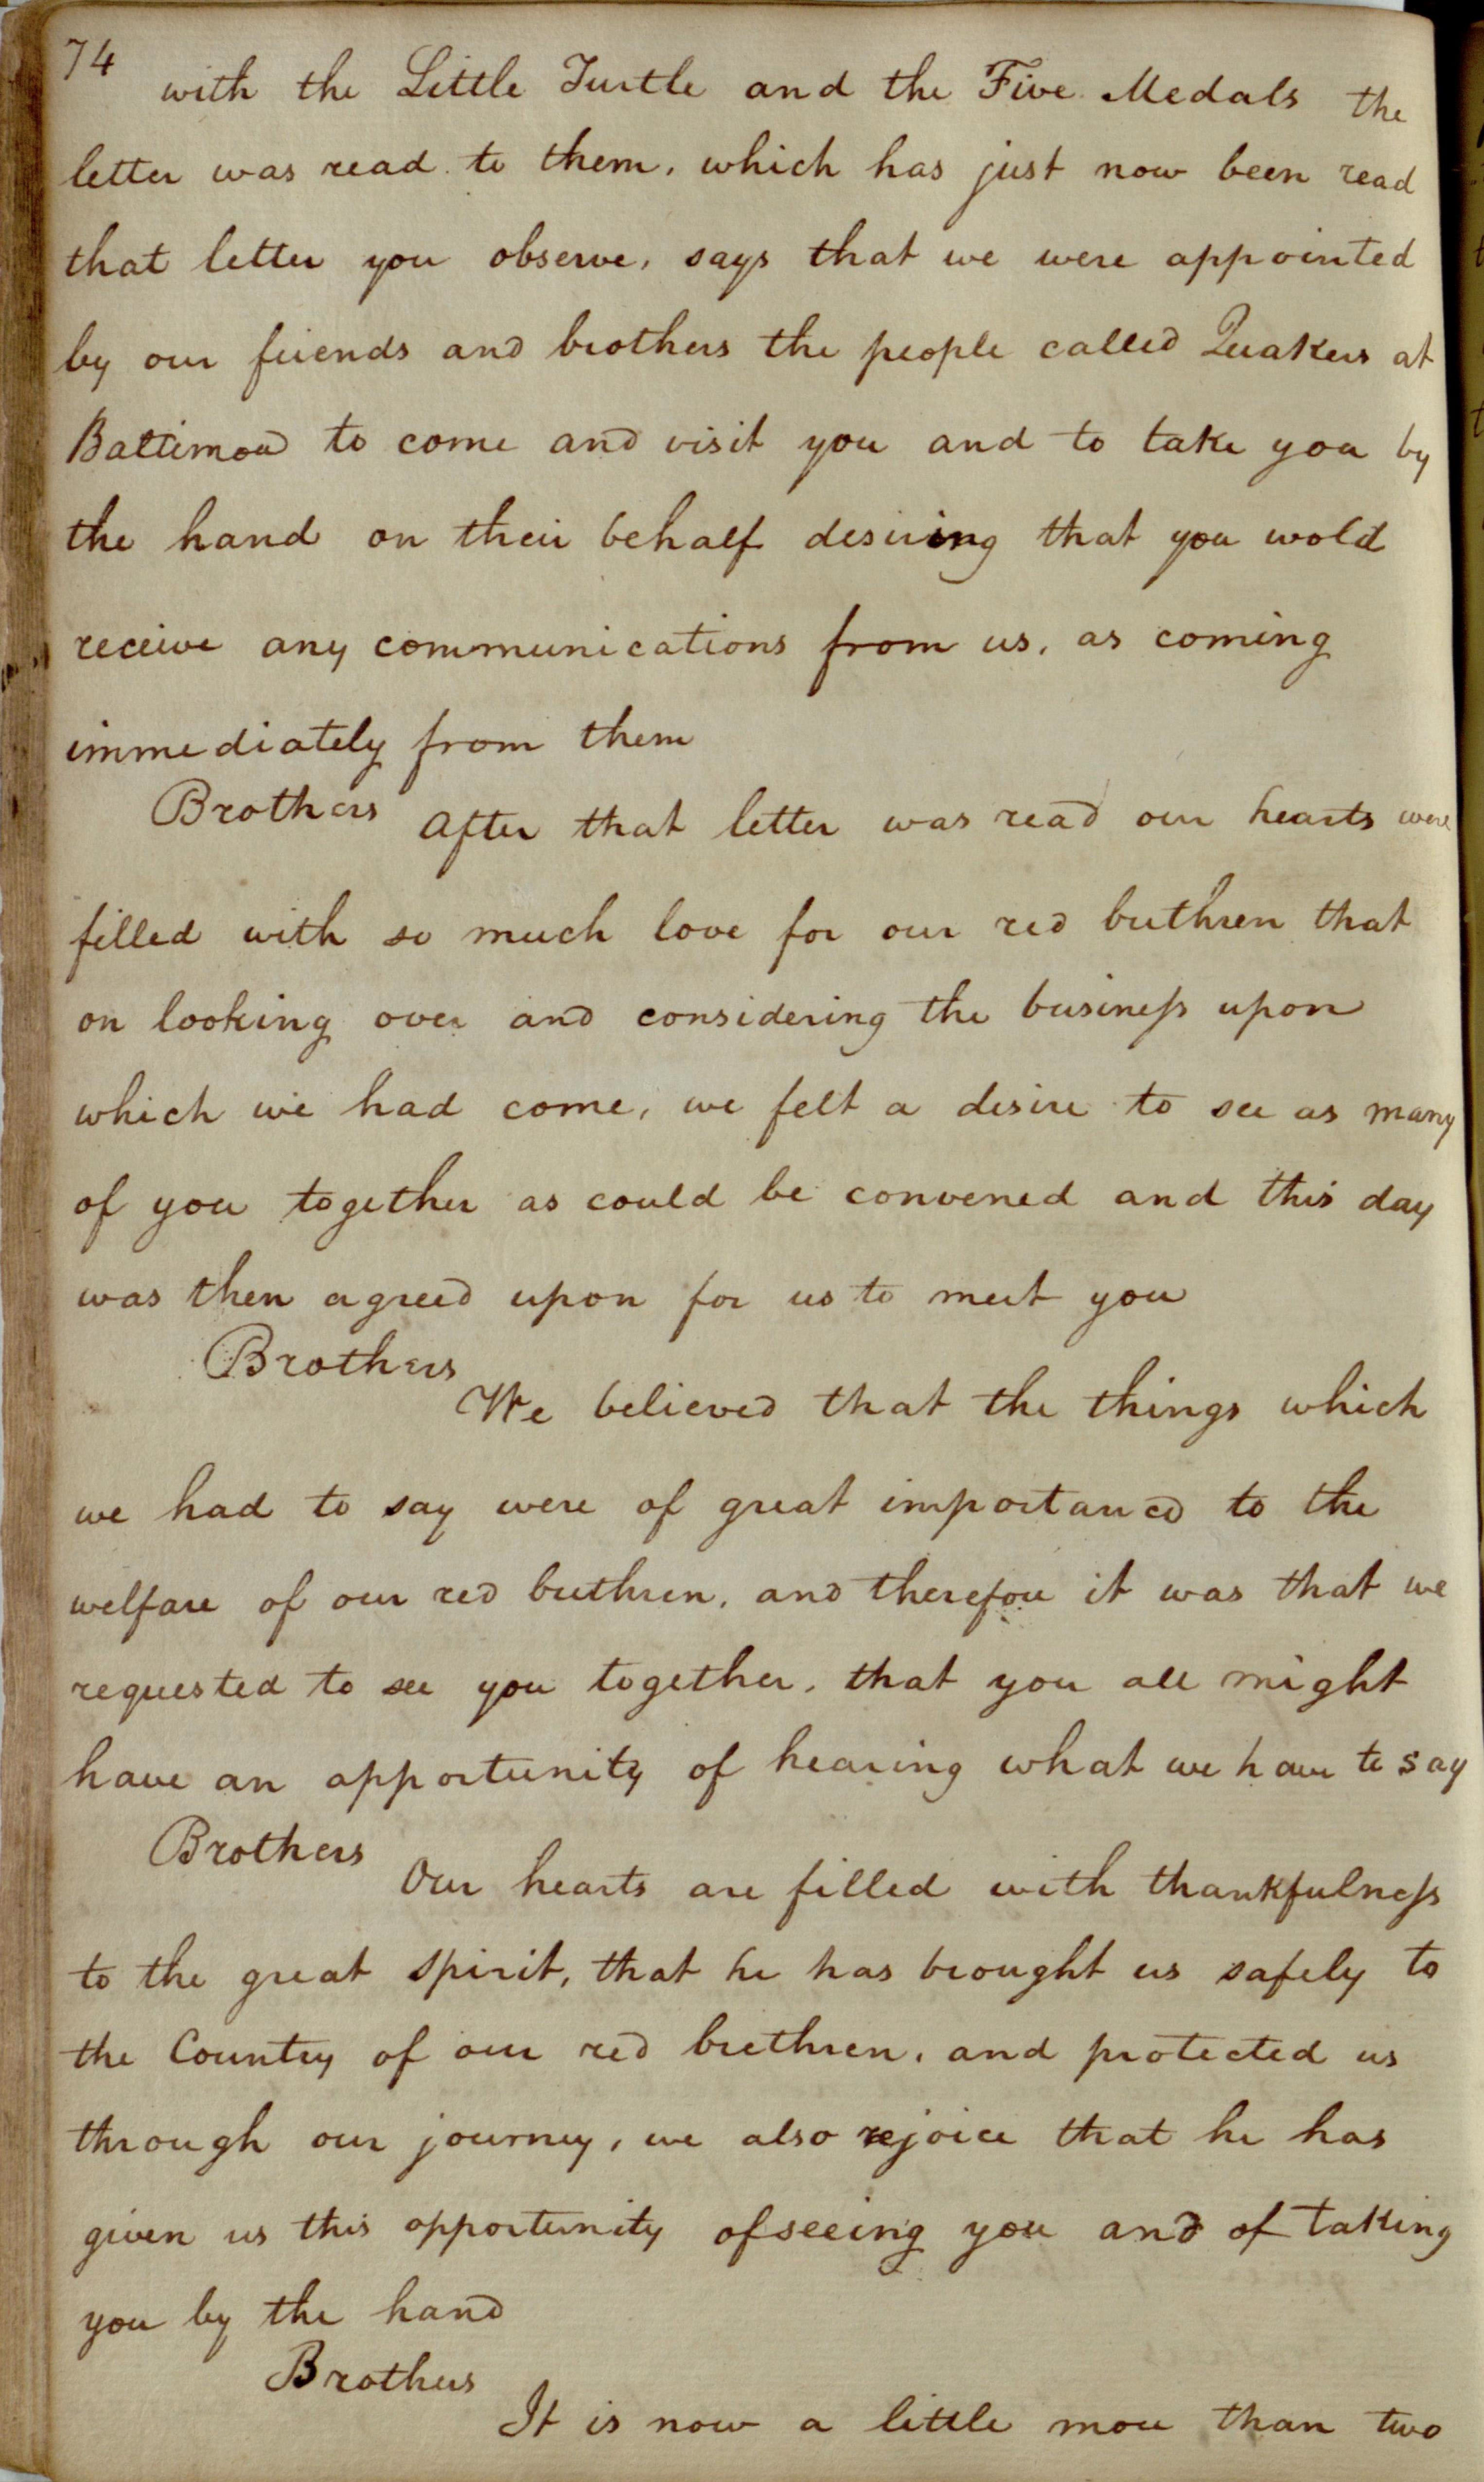 74
with the Little Turtle and the Five Medals the
letter was read to them, which has just now been read
that letter you observe, says that we were appointed
by our friends and brothers the people called Quakers at
Baltimore to come and visit you and to take you by
the hand on their behalf desiring that you wold
receive any communications from us, as coming
immediately from them
Brothers After that letter was read our hearts were
filled with so much love for our red brethren that
on looking over and considering the business upon
which we had come, we felt a desire to see as many
of you together as could be convened and this day
was then agreed upon for us to meet you
Brothers
We believed that the things which
we had to say were of great importance to the
welfare of our red brethren, and therefore it was that we
requested to see you together, that you all might
have an opportunity of hearing what we have to say
Brothers Our hearts are filled with thankfulness
to the great spirit, that he has brought us safely to
the Country of our red brethren, and protected us
through our journey, we also rejoice that he has
given us this opportunity of seeing you and of taking
you by the hand
Brothers
It is now a little more than two